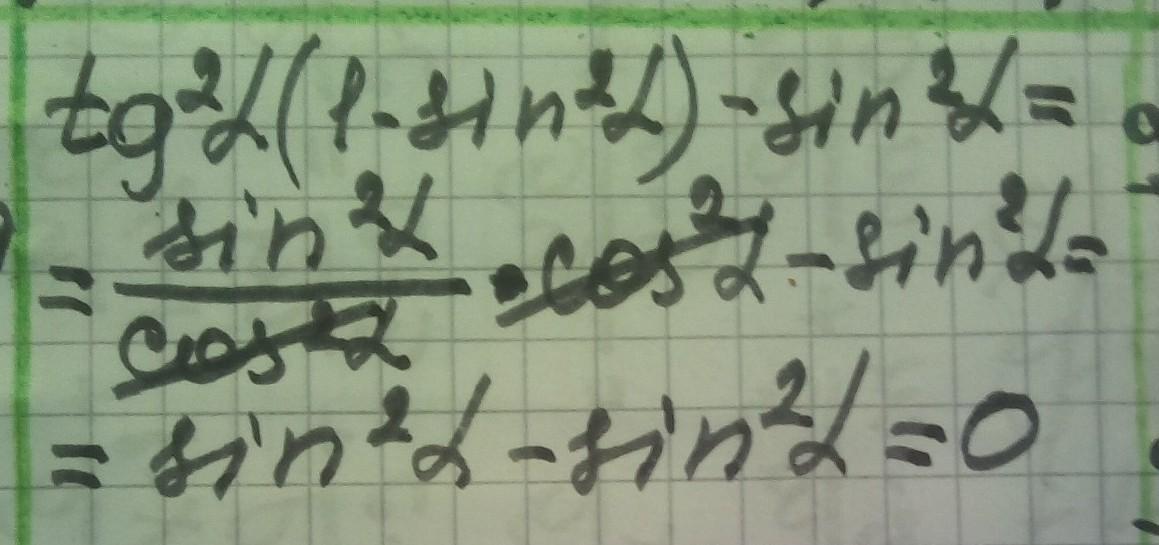 tg²α(1-sin²α)-sin²α=
= sin²α/cos²α · cos²α - sin²α=
= sin²α - sin²α = 0